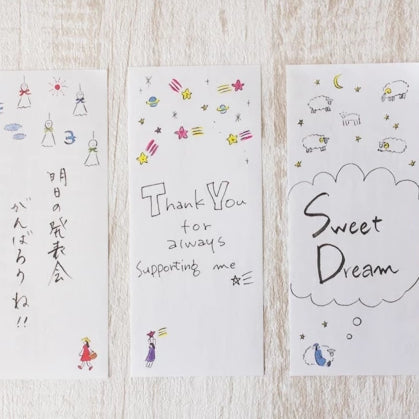 明日の発表会
がんばろうね!!
Thank You
for
always
Supporting me
Sweet
Dream